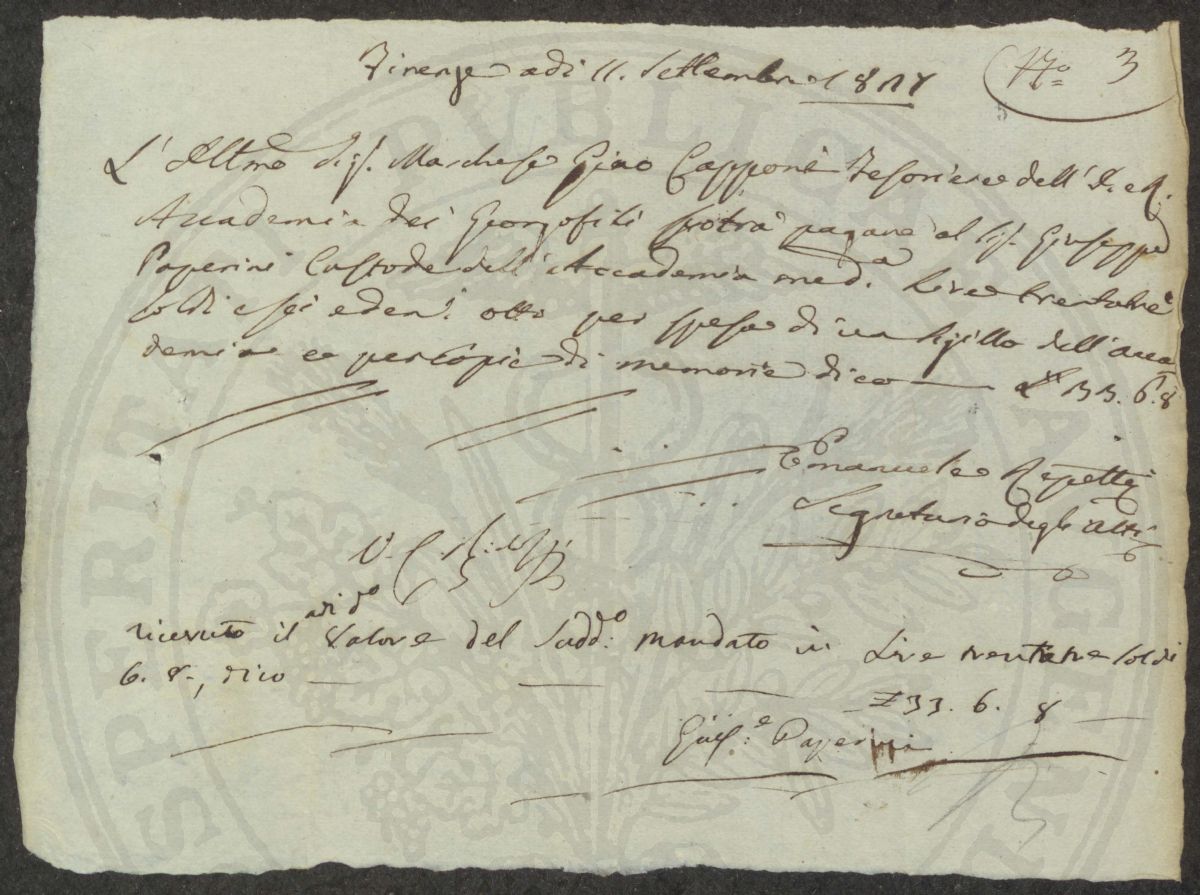 Firenze adi 11. Settembre
N.o 3
5
L'Illmo Sig. Marchese Gino Capponi Tesoriere dell' I. e R.
Accademia dei Georgofili potrà pagare al Sig. Giuseppe
Paperini Custode dell'Accademia med.a Lire trentatre
soldi sei e den.i otto per spesa di un Sigillo dell'acca
demia e per copie di memorie dico £ 33. 6. 8
Emanuele Repetti
Segretario degli Atti
V.
ricevuto il adi do valore del Sudd.o mandato in Lire trentatre soldi
6. 8., dico
£ 33. 6. 8
Gius.e Paperini
PUBLICA
PROSPERITATI